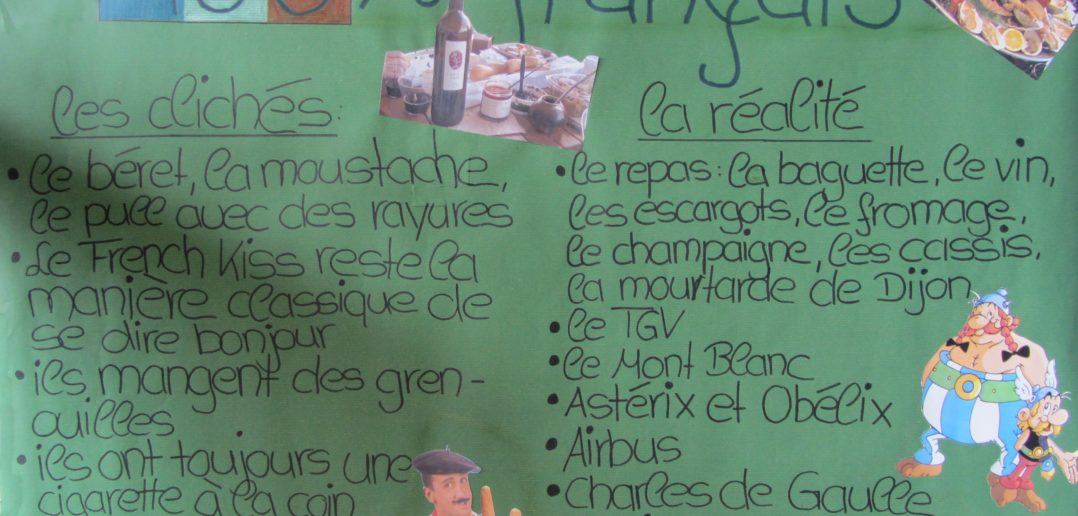 100% français
les clichés:
• le béret, la moustache,
le pull avec des rayures
• Le French Kiss reste la
manière classique de
se dire bonjour
• ils mangent des gren-
ouilles
• ils ont toujours une
cigarette à la coin
la réalité
• le repas: la baguette, le vin,
les escargots, le fromage,
le champaigne, les cassis,
la mourtarde de Dijon
• le TGV
• le Mont Blanc
• Astérix et Obélix
• Airbus
• Charles de Gaulle